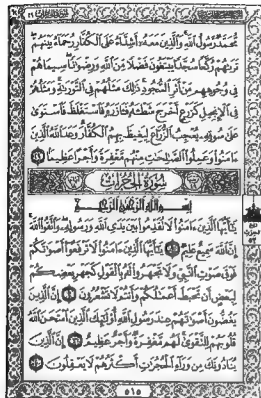 مُّحَمَّدٌ رَّسُولُ ٱللَّهِ وَٱلَّذِينَ مَعَهُۥٓ أَشِدَّآءُ عَلَى ٱلْكُفَّارِ رُحَمَآءُ بَيْنَهُمْ
تَرَىٰهُمْ رُكَّعًا سُجَّدًا يَبْتَغُونَ فَضْلًا مِّنَ ٱللَّهِ وَرِضْوَٰنًا سِيمَاهُمْ
فِى وُجُوهِهِم مِّنْ أَثَرِ ٱلسُّجُودِ ذَٰلِكَ مَثَلُهُمْ فِى ٱلتَّوْرَىٰةِ وَمَثَلُهُمْ
فِى ٱلْإِنجِيلِ كَزَرْعٍ أَخْرَجَ شَطْـَٔهُۥ فَـَٔازَرَهُۥ فَٱسْتَغْلَظَ فَٱسْتَوَىٰ
عَلَىٰ سُوقِهِۦ يُعْجِبُ ٱلزُّرَّاعَ لِيَغِيظَ بِهِمُ ٱلْكُفَّارَ وَعَدَ ٱللَّهُ ٱلَّذِينَ
ءَامَنُوا۟ وَعَمِلُوا۟ ٱلصَّٰلِحَٰتِ مِنْهُم مَّغْفِرَةً وَأَجْرًا عَظِيمًۢا ٢٩
سُورَةُ الْحُجُرَاتِ
بِسْمِ ٱللَّهِ ٱلرَّحْمَٰنِ ٱلرَّحِيمِ
يَٰٓأَيُّهَا ٱلَّذِينَ ءَامَنُوا۟ لَا تُقَدِّمُوا۟ بَيْنَ يَدَىِ ٱللَّهِ وَرَسُولِهِۦ وَٱتَّقُوا۟ ٱللَّهَ
إِنَّ ٱللَّهَ سَمِيعٌ عَلِيمٌ ١ يَٰٓأَيُّهَا ٱلَّذِينَ ءَامَنُوا۟ لَا تَرْفَعُوٓا۟ أَصْوَٰتَكُمْ
فَوْقَ صَوْتِ ٱلنَّبِىِّ وَلَا تَجْهَرُوا۟ لَهُۥ بِٱلْقَوْلِ كَجَهْرِ بَعْضِكُمْ
لِبَعْضٍ أَن تَحْبَطَ أَعْمَٰلُكُمْ وَأَنتُمْ لَا تَشْعُرُونَ ٢ إِنَّ ٱلَّذِينَ
يَغُضُّونَ أَصْوَٰتَهُمْ عِندَ رَسُولِ ٱللَّهِ أُو۟لَٰٓئِكَ ٱلَّذِينَ ٱمْتَحَنَ ٱللَّهُ
قُلُوبَهُمْ لِلتَّقْوَىٰ لَهُم مَّغْفِرَةٌ وَأَجْرٌ عَظِيمٌ ٣ إِنَّ ٱلَّذِينَ
يُنَادُونَكَ مِن وَرَآءِ ٱلْحُجُرَٰتِ أَكْثَرُهُمْ لَا يَعْقِلُونَ ٤
٥١٥